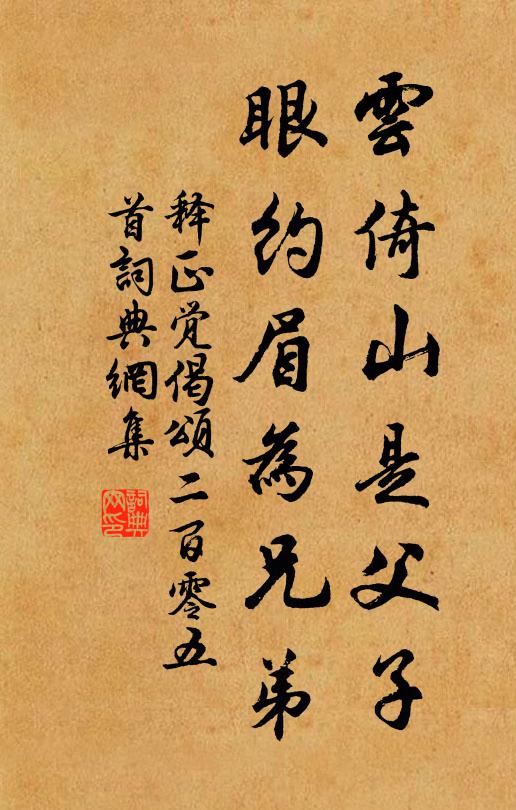 雲倚山是父子
眼約眉為兄弟
释正觉偈頌二百零五
首詞典網集
詞典
网印